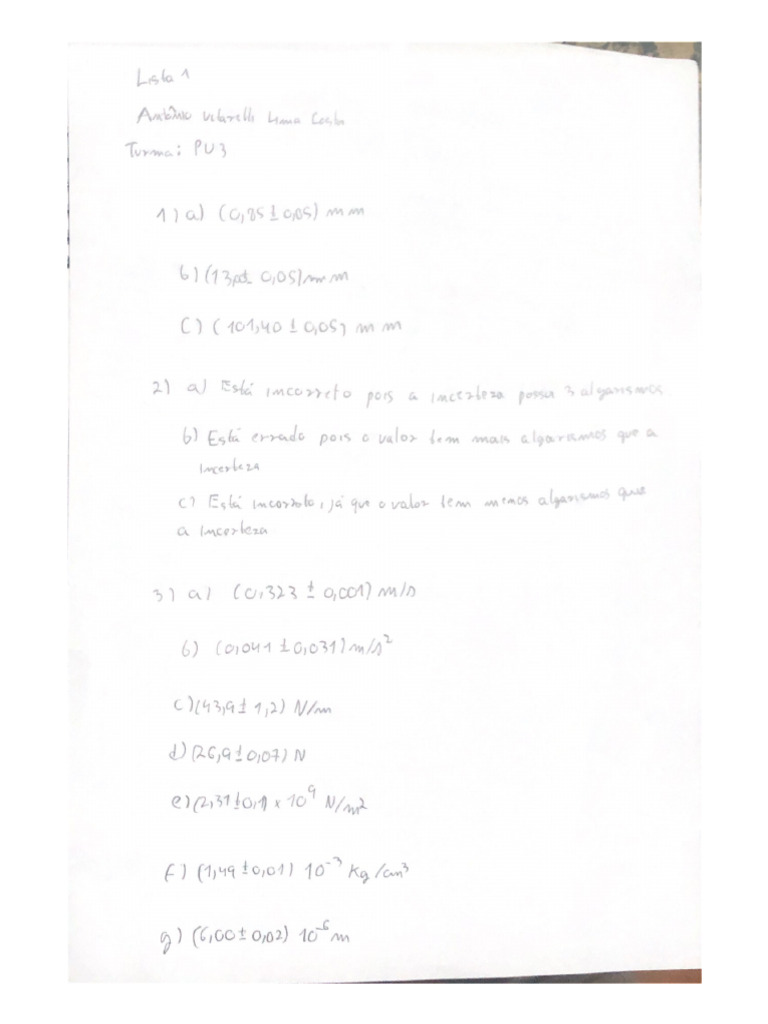 Lista 1
Antônio Lima Costa
Turma: PU3
1) a) (0,85 ± 0,05) mm
b) (13, ± 0,05) mm
c) (101,40 ± 0,05) mm
2) a) Está incorreto pois a incerteza possui 3 algarismos
b) Está errado pois o valor tem mais algarismos que a
incerteza
c) Está incorreto, já que o valor tem menos algarismos que
a incerteza
3) a) (0,323 ± 0,001) m/s
b) (0,041 ± 0,031) m/s²
c) (43,9 ± 1,2) N/m
d) (26,9 ± 0,07) N
e) (2,31 ± 0,1) × 10⁹ N/m²
f) (1,49 ± 0,01) 10⁻³ Kg/cm³
g) (6,00 ± 0,02) 10⁻⁶ m